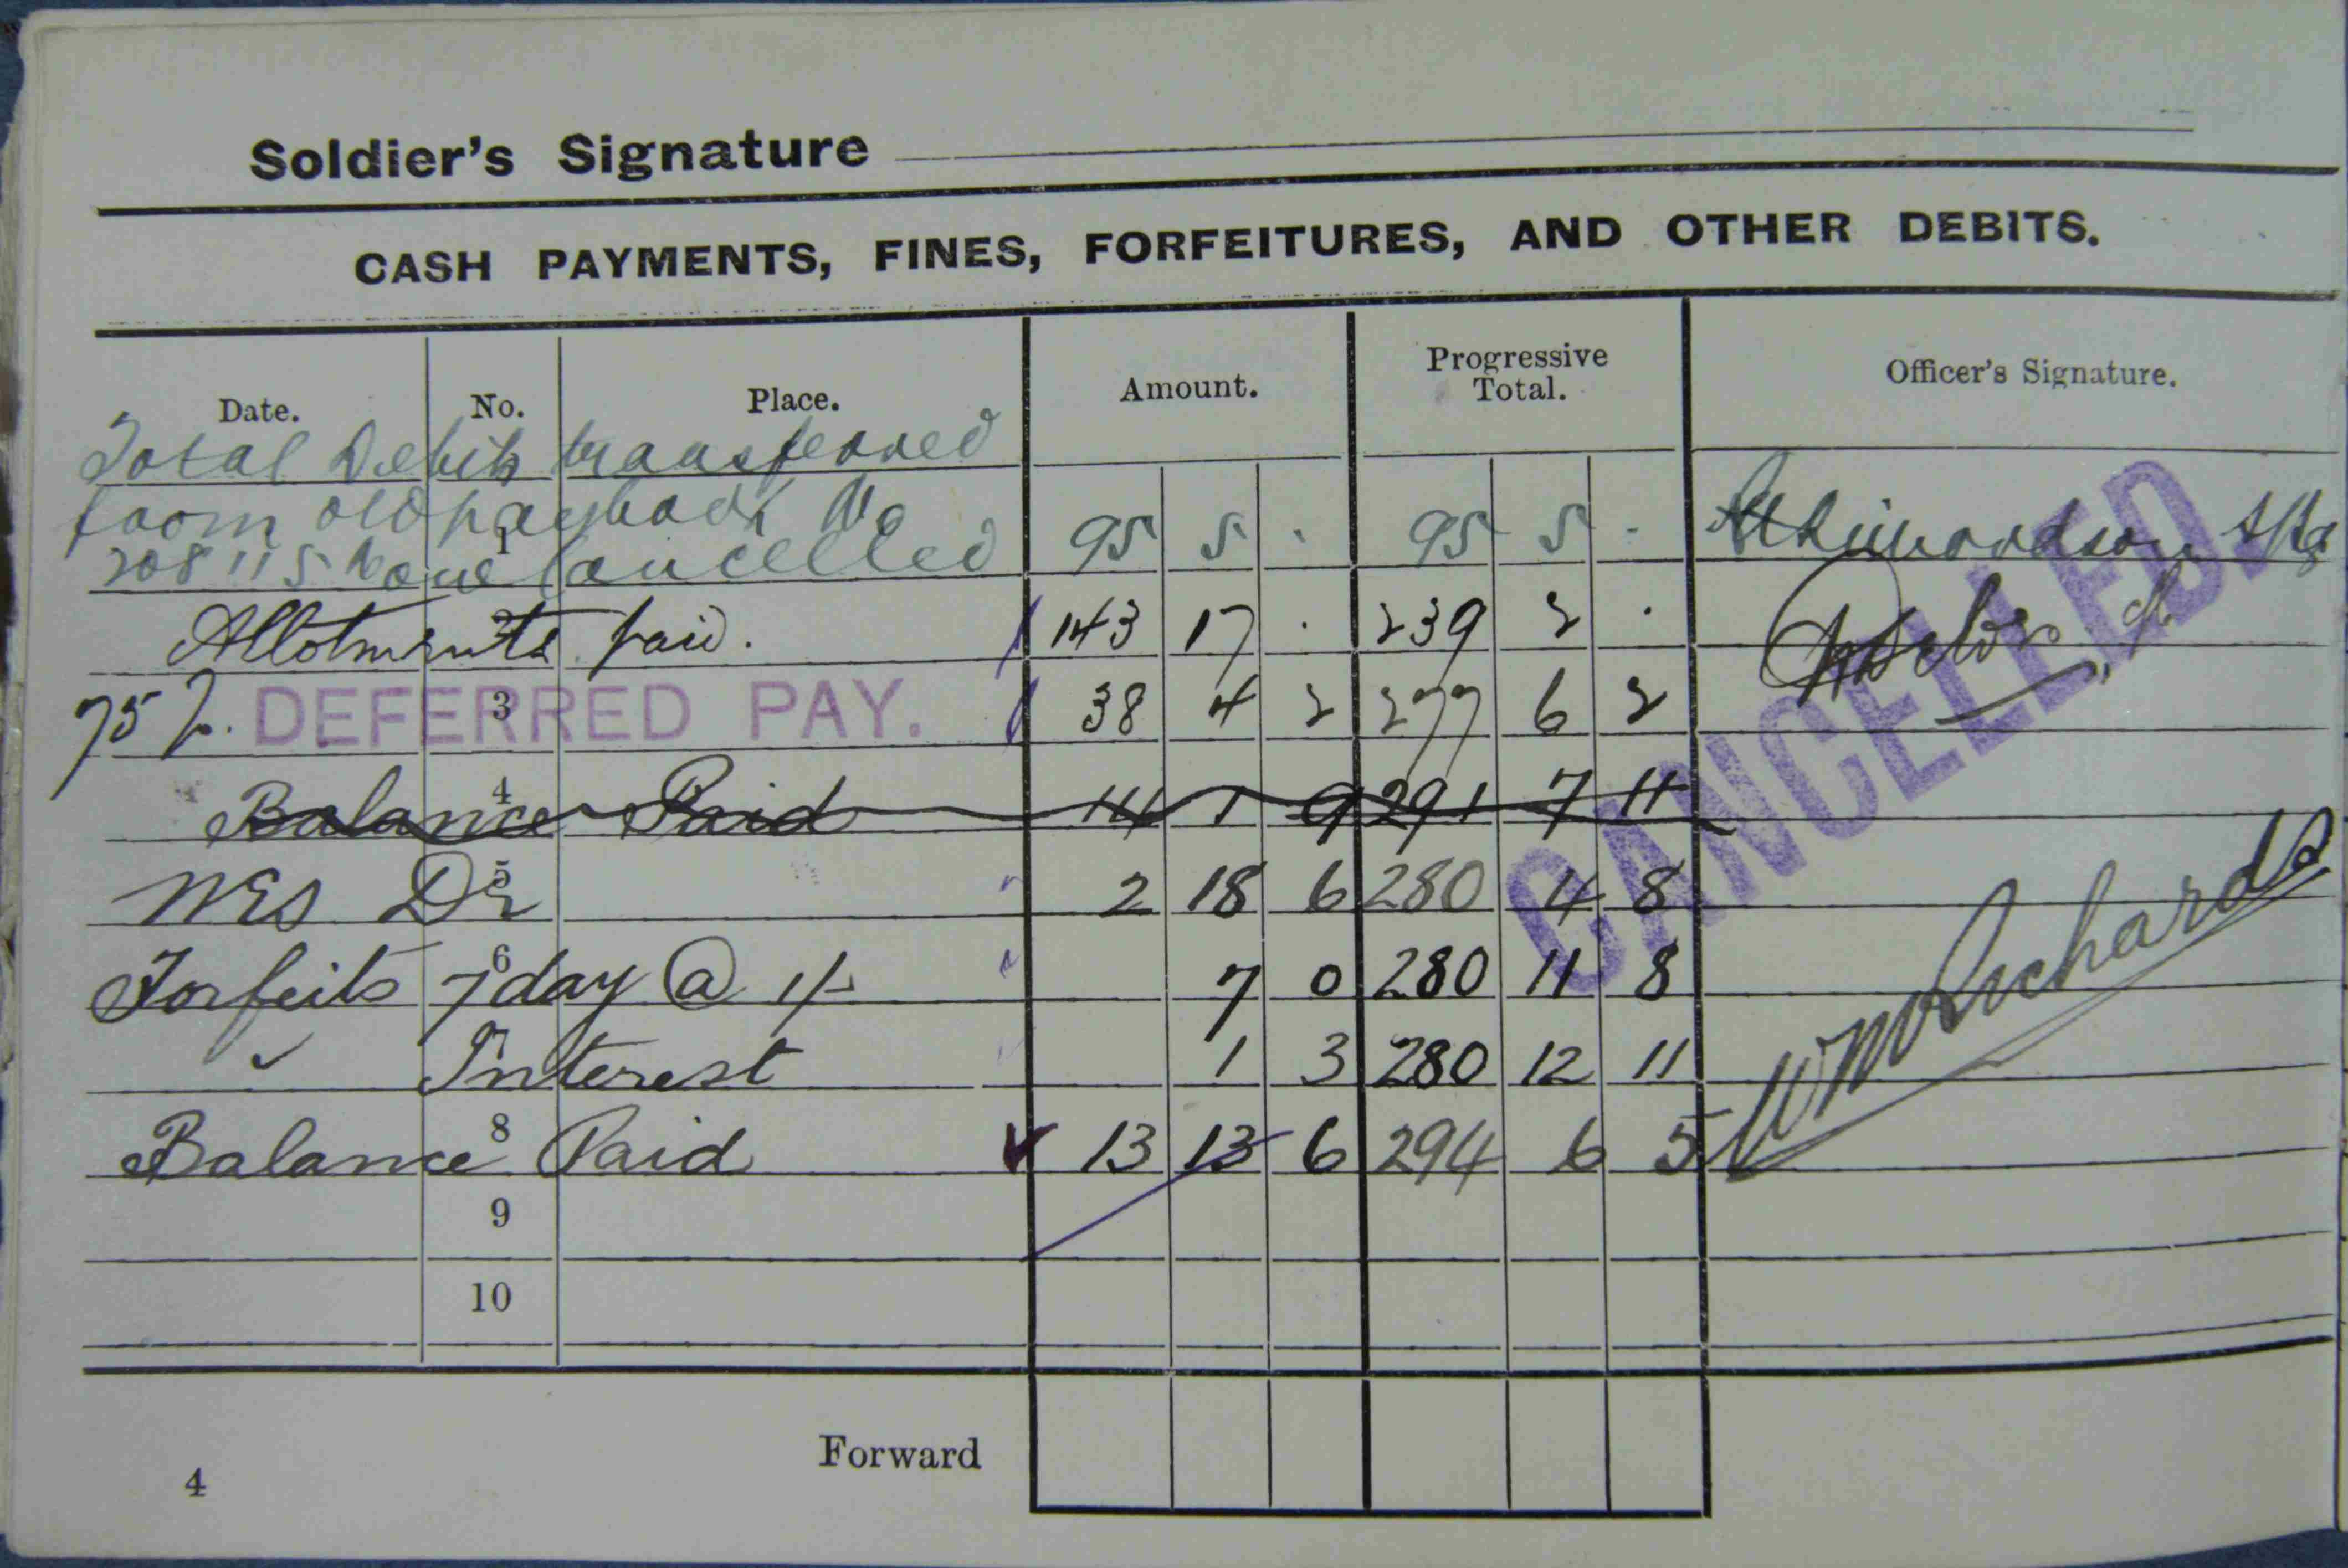 Soldier's Signature
CASH PAYMENTS, FINES, FORFEITURES, AND OTHER DEBITS.
Date. No. Place. Amount. Progressive Total. Officer's Signature.
Total Debits transferred
from old paybook No
1
208115 now Cancelled 95 5 . 95 5 -
Allotments 2 paid. 143 17 . 239 2 .
75 DEFERRED PAY. 3 38 4 2 277 6 2
Balance 4 Paid 14 1 9 291 7 11
WES Dr 5 2 18 6 280 4 8
Forfeits 6 7 day @ 1/- 7 0 280 11 8
7 Interest 1 3 280 12 11
Balance 8 Paid 13 13 6 294 6 5
9
10
CANCELLED.
Forward
4